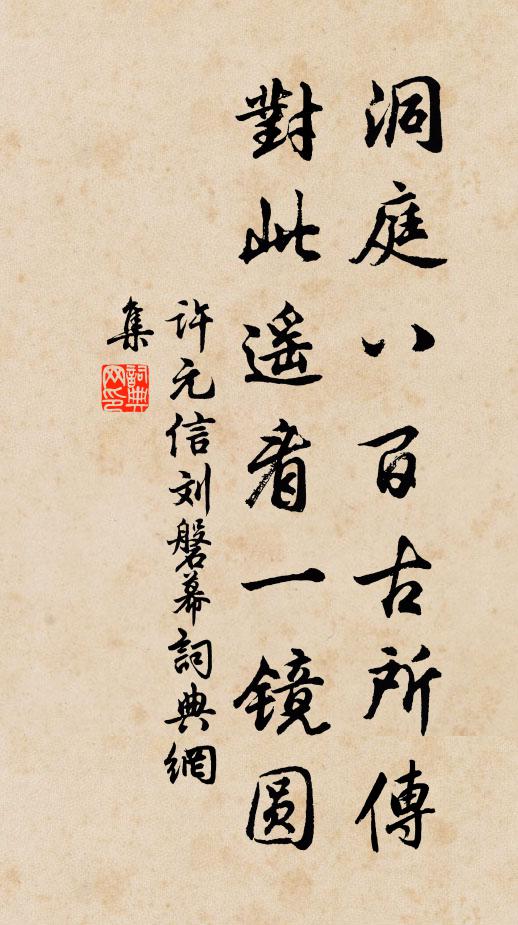 洞庭八百古所傳
對此遥看一镜圆
许元信刘磐幕詞典網
集
詞典
网印